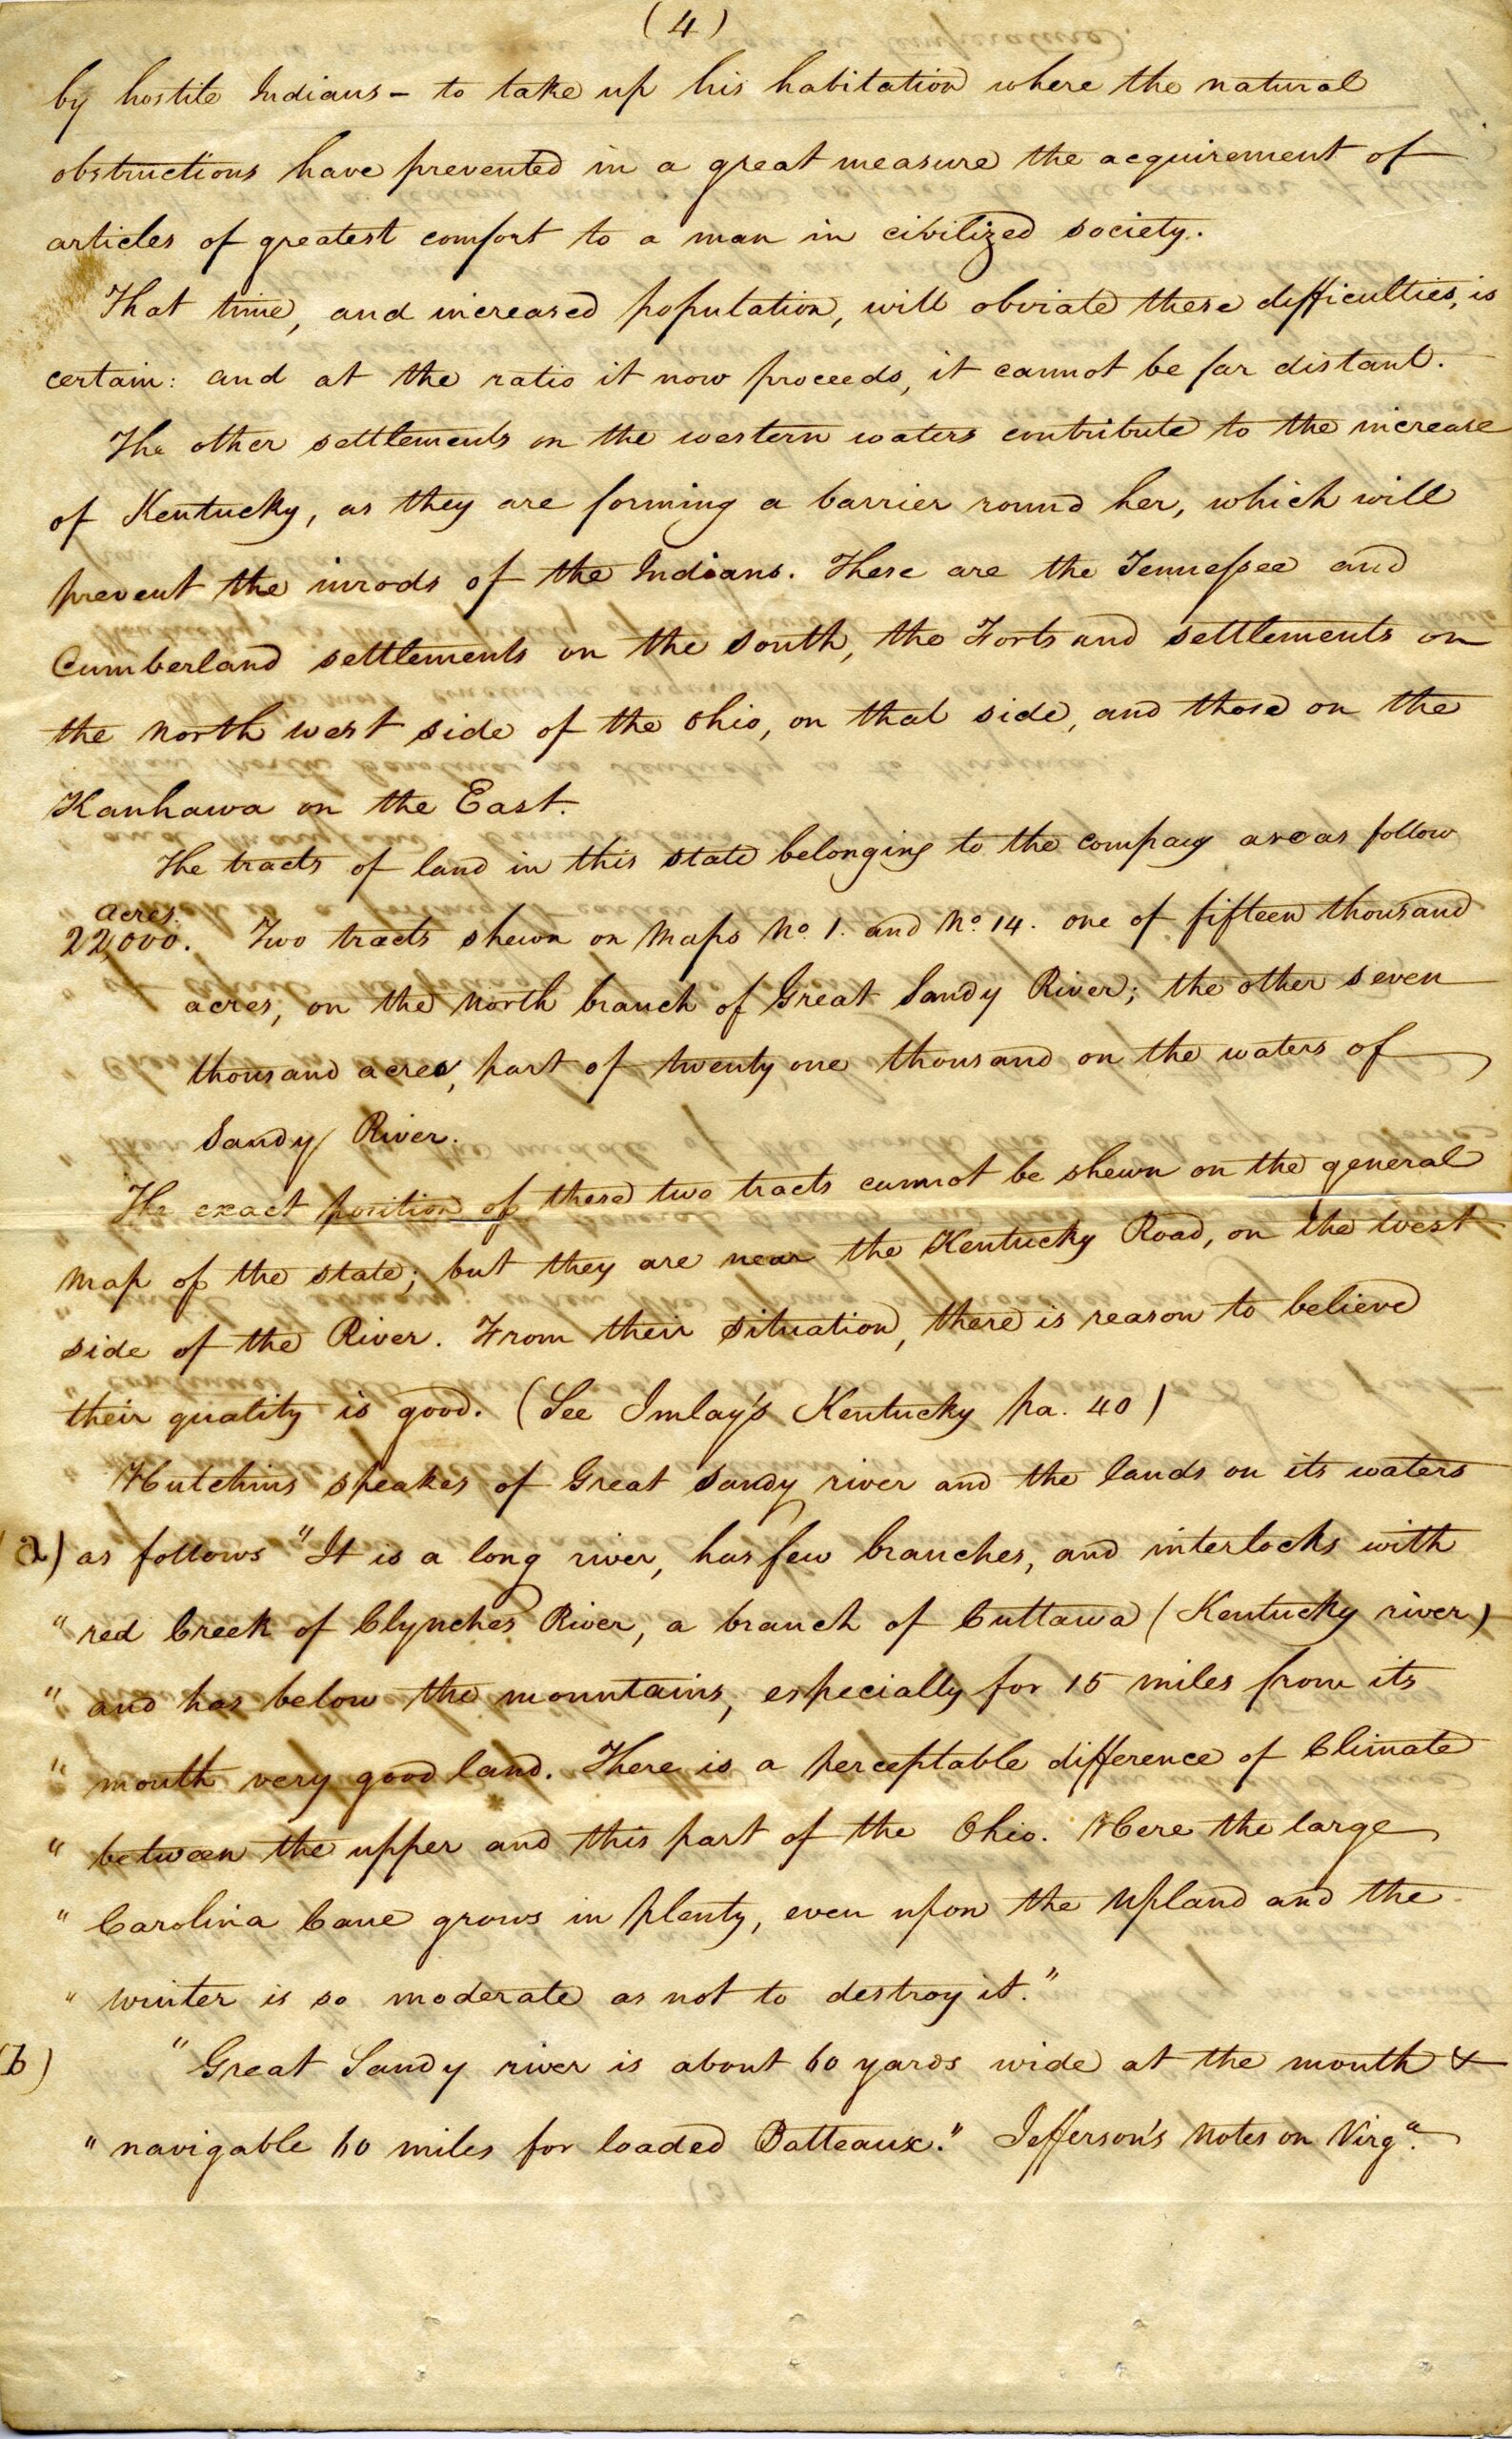 (4)
by hostile Indians - to take up his habitation where the natural
obstructions have prevented in a great measure the acquirement of
articles of greatest comfort to a man in civilized society.
That time, and increased population, will obviate these difficulties, is
certain: and at the ratio it now proceeds, it cannot be far distant.
The other settlements on the western waters contribute to the increase
of Kentucky, as they are forming a barrier round her, which will
prevent the inrods of the Indians. These are the Tennessee and
Cumberland settlements on the South, the Forts and settlements on
the North west side of the Ohio, on that side, and those on the
Kanhawa on the East.
The tracts of land in this state belonging to the company are as follow
acres.
22,000. Two tracts shewn on Maps No. 1. and No. 14. one of fifteen thousand
acres, on the North branch of Great Sandy River; the other seven
thousand acres, part of twenty one thousand on the waters of
Sandy River.
The exact position of these two tracts cannot be shewn on the general
Map of the state; but they are near the Kentucky Road, on the West
side of the River. From their situation, there is reason to believe
their quality is good. (See Imlay's Kentucky pa. 40)
Hutchins speakes of Great Sandy river and the lands on its waters
a) as follows "It is a long river, has few branches, and interlocks with
" red Creek of Clynches River, a branch of Cuttawa (Kentucky river)
" and has below the mountains, especially for 15 miles from its
" mouth very good land. There is a perceptable difference of Climate
" between the upper and this part of the Ohio. Here the large
" Carolina Cane grows in plenty, even upon the Upland and the
" winter is so moderate as not to destroy it."
(b) "Great Sandy river is about 60 yards wide at the mouth &
" navigable 60 miles for loaded Batteaux." Jefferson's Notes on Virga.